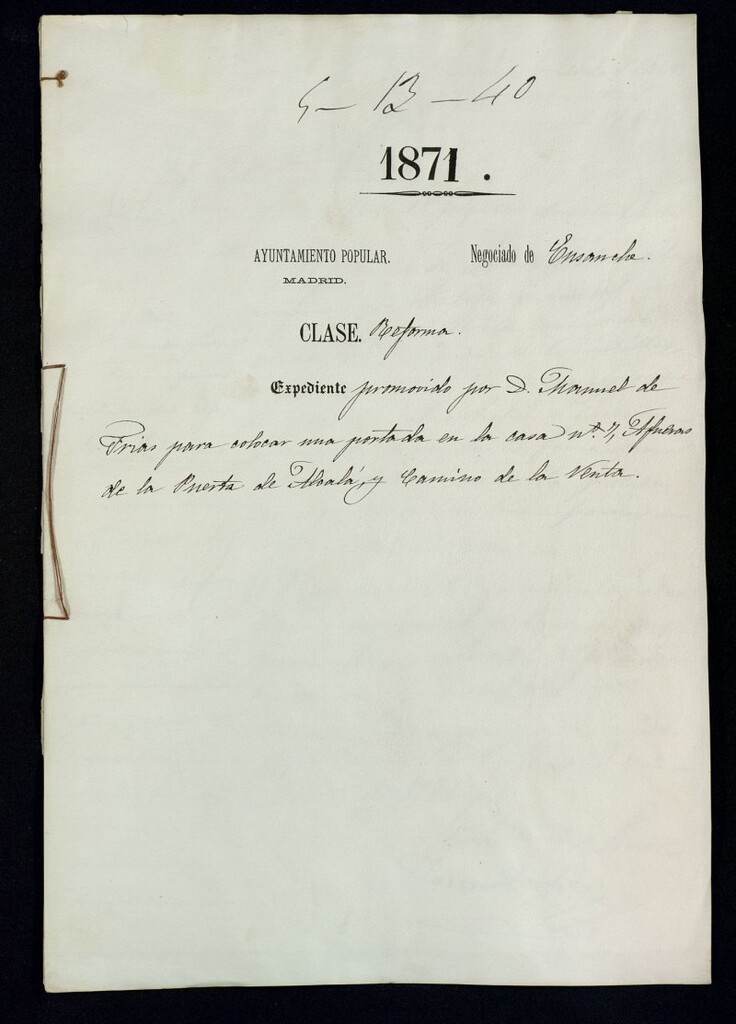 5 - 13 - 40
1871.
AYUNTAMIENTO POPULAR. Negociado de Ensanche.
MADRID.
CLASE. Reforma.
Expediente promovido por D. Manuel de
Frias para colocar una portada en la casa nº 7, Afueras
de la Puerta de Alcalá, y Camino de la Venta.